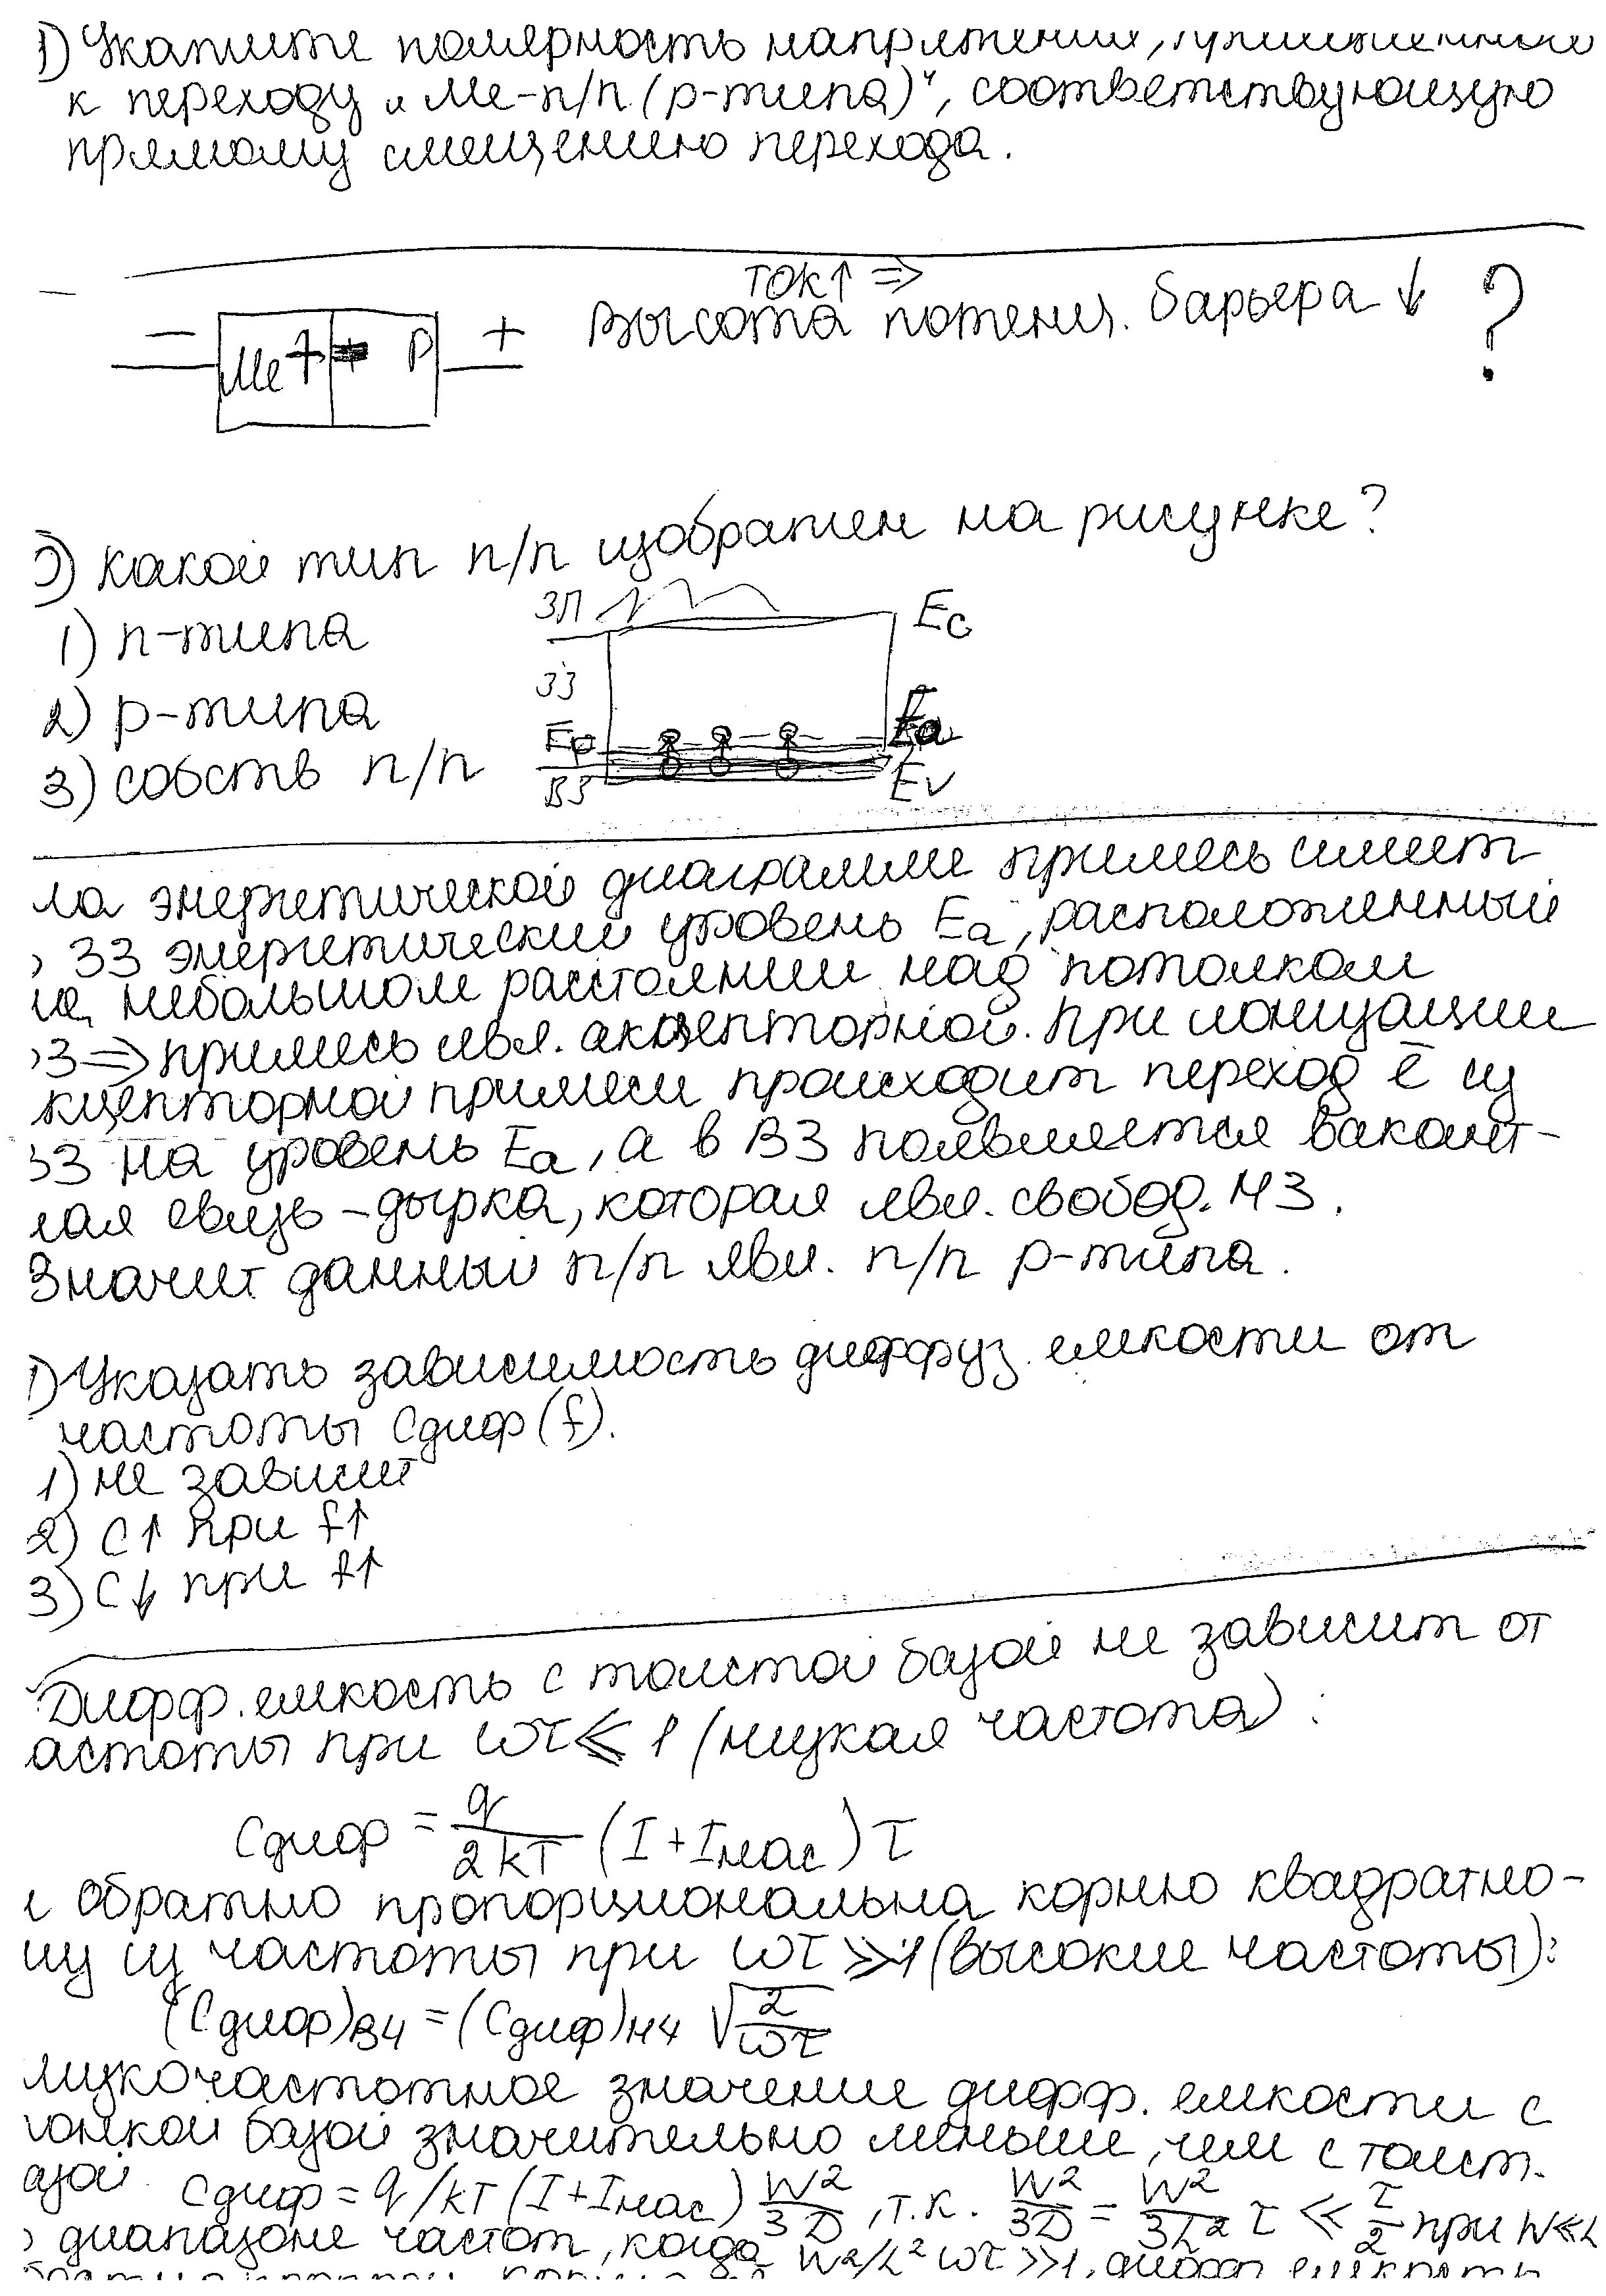 1) Укажите полярность напряжения,
к переходу "Ме-п/п (р-типа)", соответствующую
прямому смещению перехода.
ТОК↑ ⇒
− Ме + + р + Высота потенц. барьера ↓ ?
) Какой тип п/п изображен на рисунке?
1) n-типа
2) р-типа
3) собств п/п
ЗП Ec
ЗЗ
EF Ea
ВЗ Ev
на энергетической диаграмме примесь имеет
в ЗЗ энергетический уровень Ea, расположенный
на небольшом расстоянии над потолком
ВЗ ⇒ примесь явл. акцепторной. При ионизации
кцепторной примеси происходит переход ē из
ВЗ на уровень Ea, а в ВЗ появляется вакант-
ная связь – дырка, которая явл. свобод. НЗ.
Значит данный п/п явл. п/п р-типа.
) Указать зависимость диффуз. емкости от
частоты Cдиф (f).
1) не зависит
2) C↑ при f↑
3) C↓ при f↑
Дифф. емкость с толстой базой не зависит от
астоты при ωτ ≪ 1 (низкая частота):
Cдиф = q/2kT (I + Iнас) τ
и обратно пропорциональна корню квадратно-
му из частоты при ωτ ≫ 1 (высокие частоты):
(Cдиф)ВЧ = (Cдиф)НЧ √2/ωτ
низкочастотное значение дифф. емкости с
тонкой базой значительно меньше, чем с толст.
азой Cдиф = q/kT (I + Iнас) W²/3D, т.к. W²/3D = W²/3L² τ ≪ τ/2 при W≪L
в диапазоне частот, когда W²/L² ωτ ≫ 1,